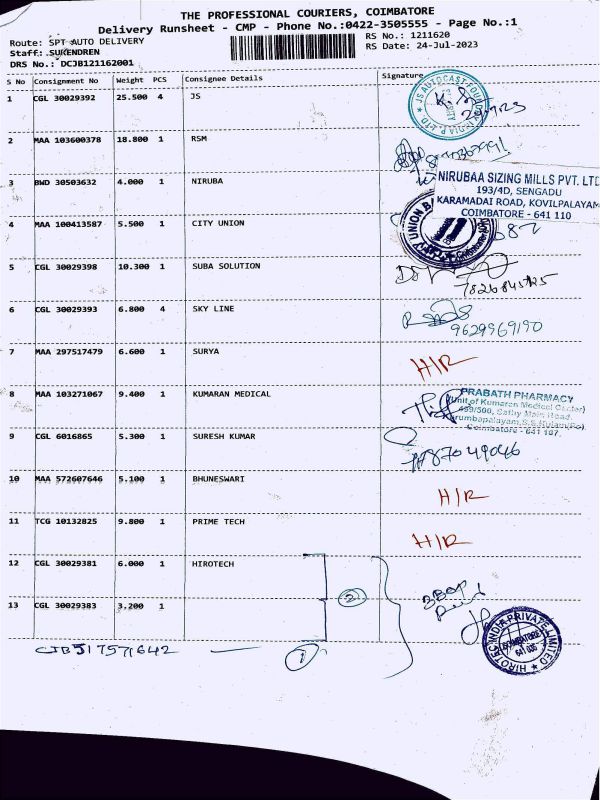 THE PROFESSIONAL COURIERS, COIMBATORE
Delivery Runsheet - CMP - Phone No.:0422-3505555 - Page No.:1
Route: SPT AUTO DELIVERY
RS No.: 1211620
Staff: SURENDREN
RS Date: 24-Jul-2023
DRS No.: DCJB121162001
S No Consignment No Weight PCS Consignee Details Signature
1 CGL 30029392 25.500 4 JS
2 MAA 103600378 18.800 1 RSM
3 BWD 30503632 4.000 1 NIRUBA
NIRUBAA SIZING MILLS PVT. LTD
193/4D, SENGADU
KARAMADAI ROAD, KOVILPALAYAM
COIMBATORE - 641 110
4 MAA 100413587 5.500 1 CITY UNION
5 CGL 30029398 10.300 1 SUBA SOLUTION
6 CGL 30029393 6.800 4 SKY LINE
9629969190
7 MAA 297517479 6.600 1 SURYA H/R
8 MAA 103271067 9.400 1 KUMARAN MEDICAL
PRABATH PHARMACY
(Unit of Kumaran Medical Center)
499/500, Sathy Main Road,
Kurumbapalayam, S.S.Kulam(Po)
Coimbatore - 641 107.
9 CGL 6016865 5.300 1 SURESH KUMAR
10 MAA 572607646 5.100 1 BHUNESWARI H/R
11 TCG 10132825 9.800 1 PRIME TECH H/R
12 CGL 30029381 6.000 1 HIROTECH
2
13 CGL 30029383 3.200 1
HIROTEC INDIA PRIVATE LIMITED
COIMBATORE
641 035
CJB517571642
1